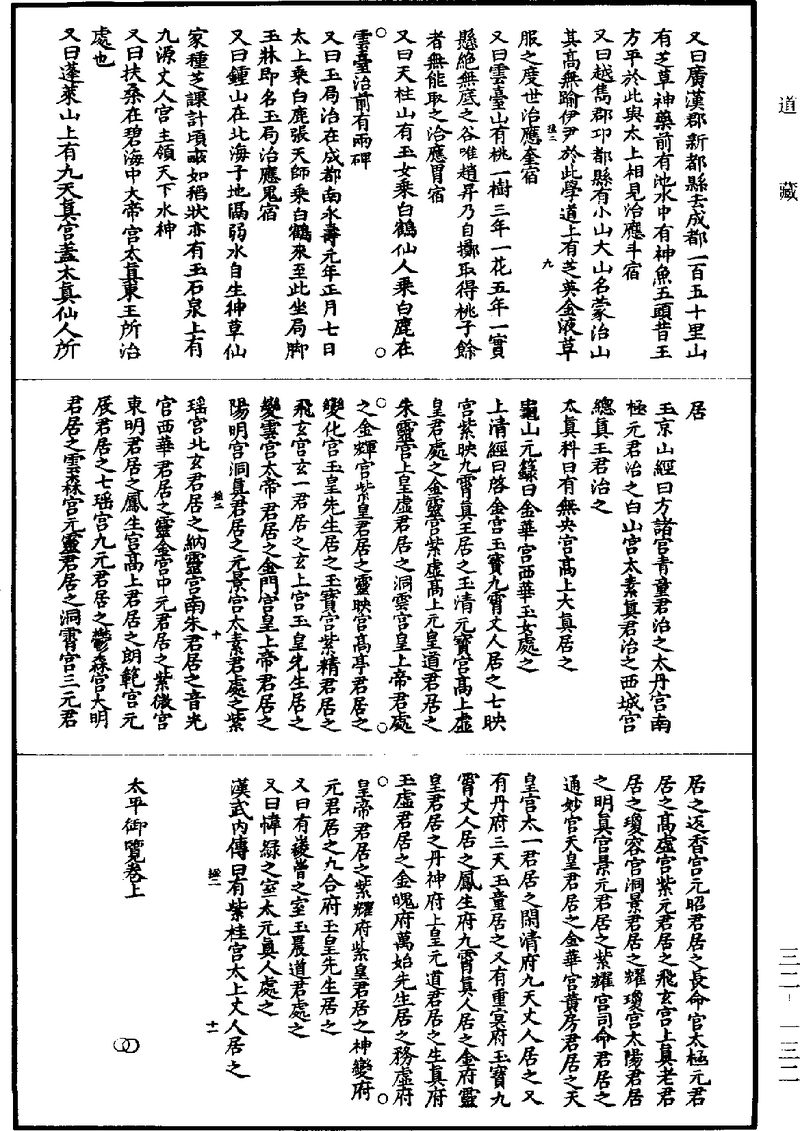 道藏
又曰廣漢郡新都縣去成都一百五十里山
有芝草神藥前有池水中有神魚五頭昔王
方平於此與太上相見治應斗宿
又曰越雋郡邛都縣有小山大山名蒙治山
其高無踰伊尹於此學道上有芝英金液草
服之度世治應奎宿
又曰雲臺山有桃一樹三年一花五年一實
懸絕無底之谷唯趙昇乃自擲取得桃子餘
者無能取之治應胃宿
又曰天柱山有玉女乘白鶴仙人乘白鹿在
雲臺治前有兩碑
又曰玉局治在成都南永壽元年正月七日
太上乘白鹿張天師乘白鶴來至此坐局脚
玉牀即名玉局治應鬼宿
又曰鍾山在北海子地隔弱水自生神草仙
家種芝課計頃畝如稻狀亦有玉石泉上有
九源丈人宮主領天下水神
又曰扶桑在碧海中大帝宮太真東王所治
處也
又曰蓬萊山上有九天真宮蓋太真仙人所
九
居
玉京山經曰方諸宮青童君治之太丹宮南
極元君治之白山宮太素真君治之西城宮
總真王君治之
太真科曰有無央宮高上大真居之
龜山元籙曰金華宮西華玉女處之
上清經曰啓金宮玉寶九霄丈人居之七映
宮紫映九霄真王居之玉清元寶宮高上虛
皇君處之金靈宮紫虛高上元皇道君居之
朱靈宮上皇虛君居之洞雲宮皇上帝君處
之金輝宮紫皇君居之靈映宮高亭君居之
變化宮玉皇先生居之玉寶宮紫精君居之
飛玄宮玄一君居之玄上宮玉皇先生居之
變雲宮太帝君居之金門宮皇上帝君居之
陽明宮洞真君居之元景宮太素君處之紫
瑶宮北玄君居之納靈宮南朱君居之音光
宮西華君居之靈金宮中元君居之紫微宮
東明君居之鳳生宮高上君居之朗範宮元
辰君居之七瑶宮九元君居之鬱森宮大明
君居之雲森宮元靈君居之洞霄宮三元君
十
居之返香宮元昭君居之長命宮太極元君
居之高虛宮紫元君居之飛玄宮上真老君
居之瓊容宮洞景君居之耀瓊宮太陽君居
之明真宮景元君居之紫耀宮司命君居之
通妙宮天皇君居之金華宮黃房君居之天
皇宮太一君居之閒清府九天丈人居之又
有丹府三天玉童居之又有重冥府玉寶九
霄丈人居之鳳生府九霄真人居之金府靈
皇君居之丹神府上皇元道君居之生真府
玉虛君居之金魄府萬始先生居之務虛府
皇帝君居之紫耀府紫皇君居之神變府
元君居之九合府玉皇先生居之
又曰有之室玉晨道君處之
又曰幃綠之室太元真人處之
漢武內傳曰有紫桂宮太上丈人居之
十一
太平御覽卷上
三二－一三二